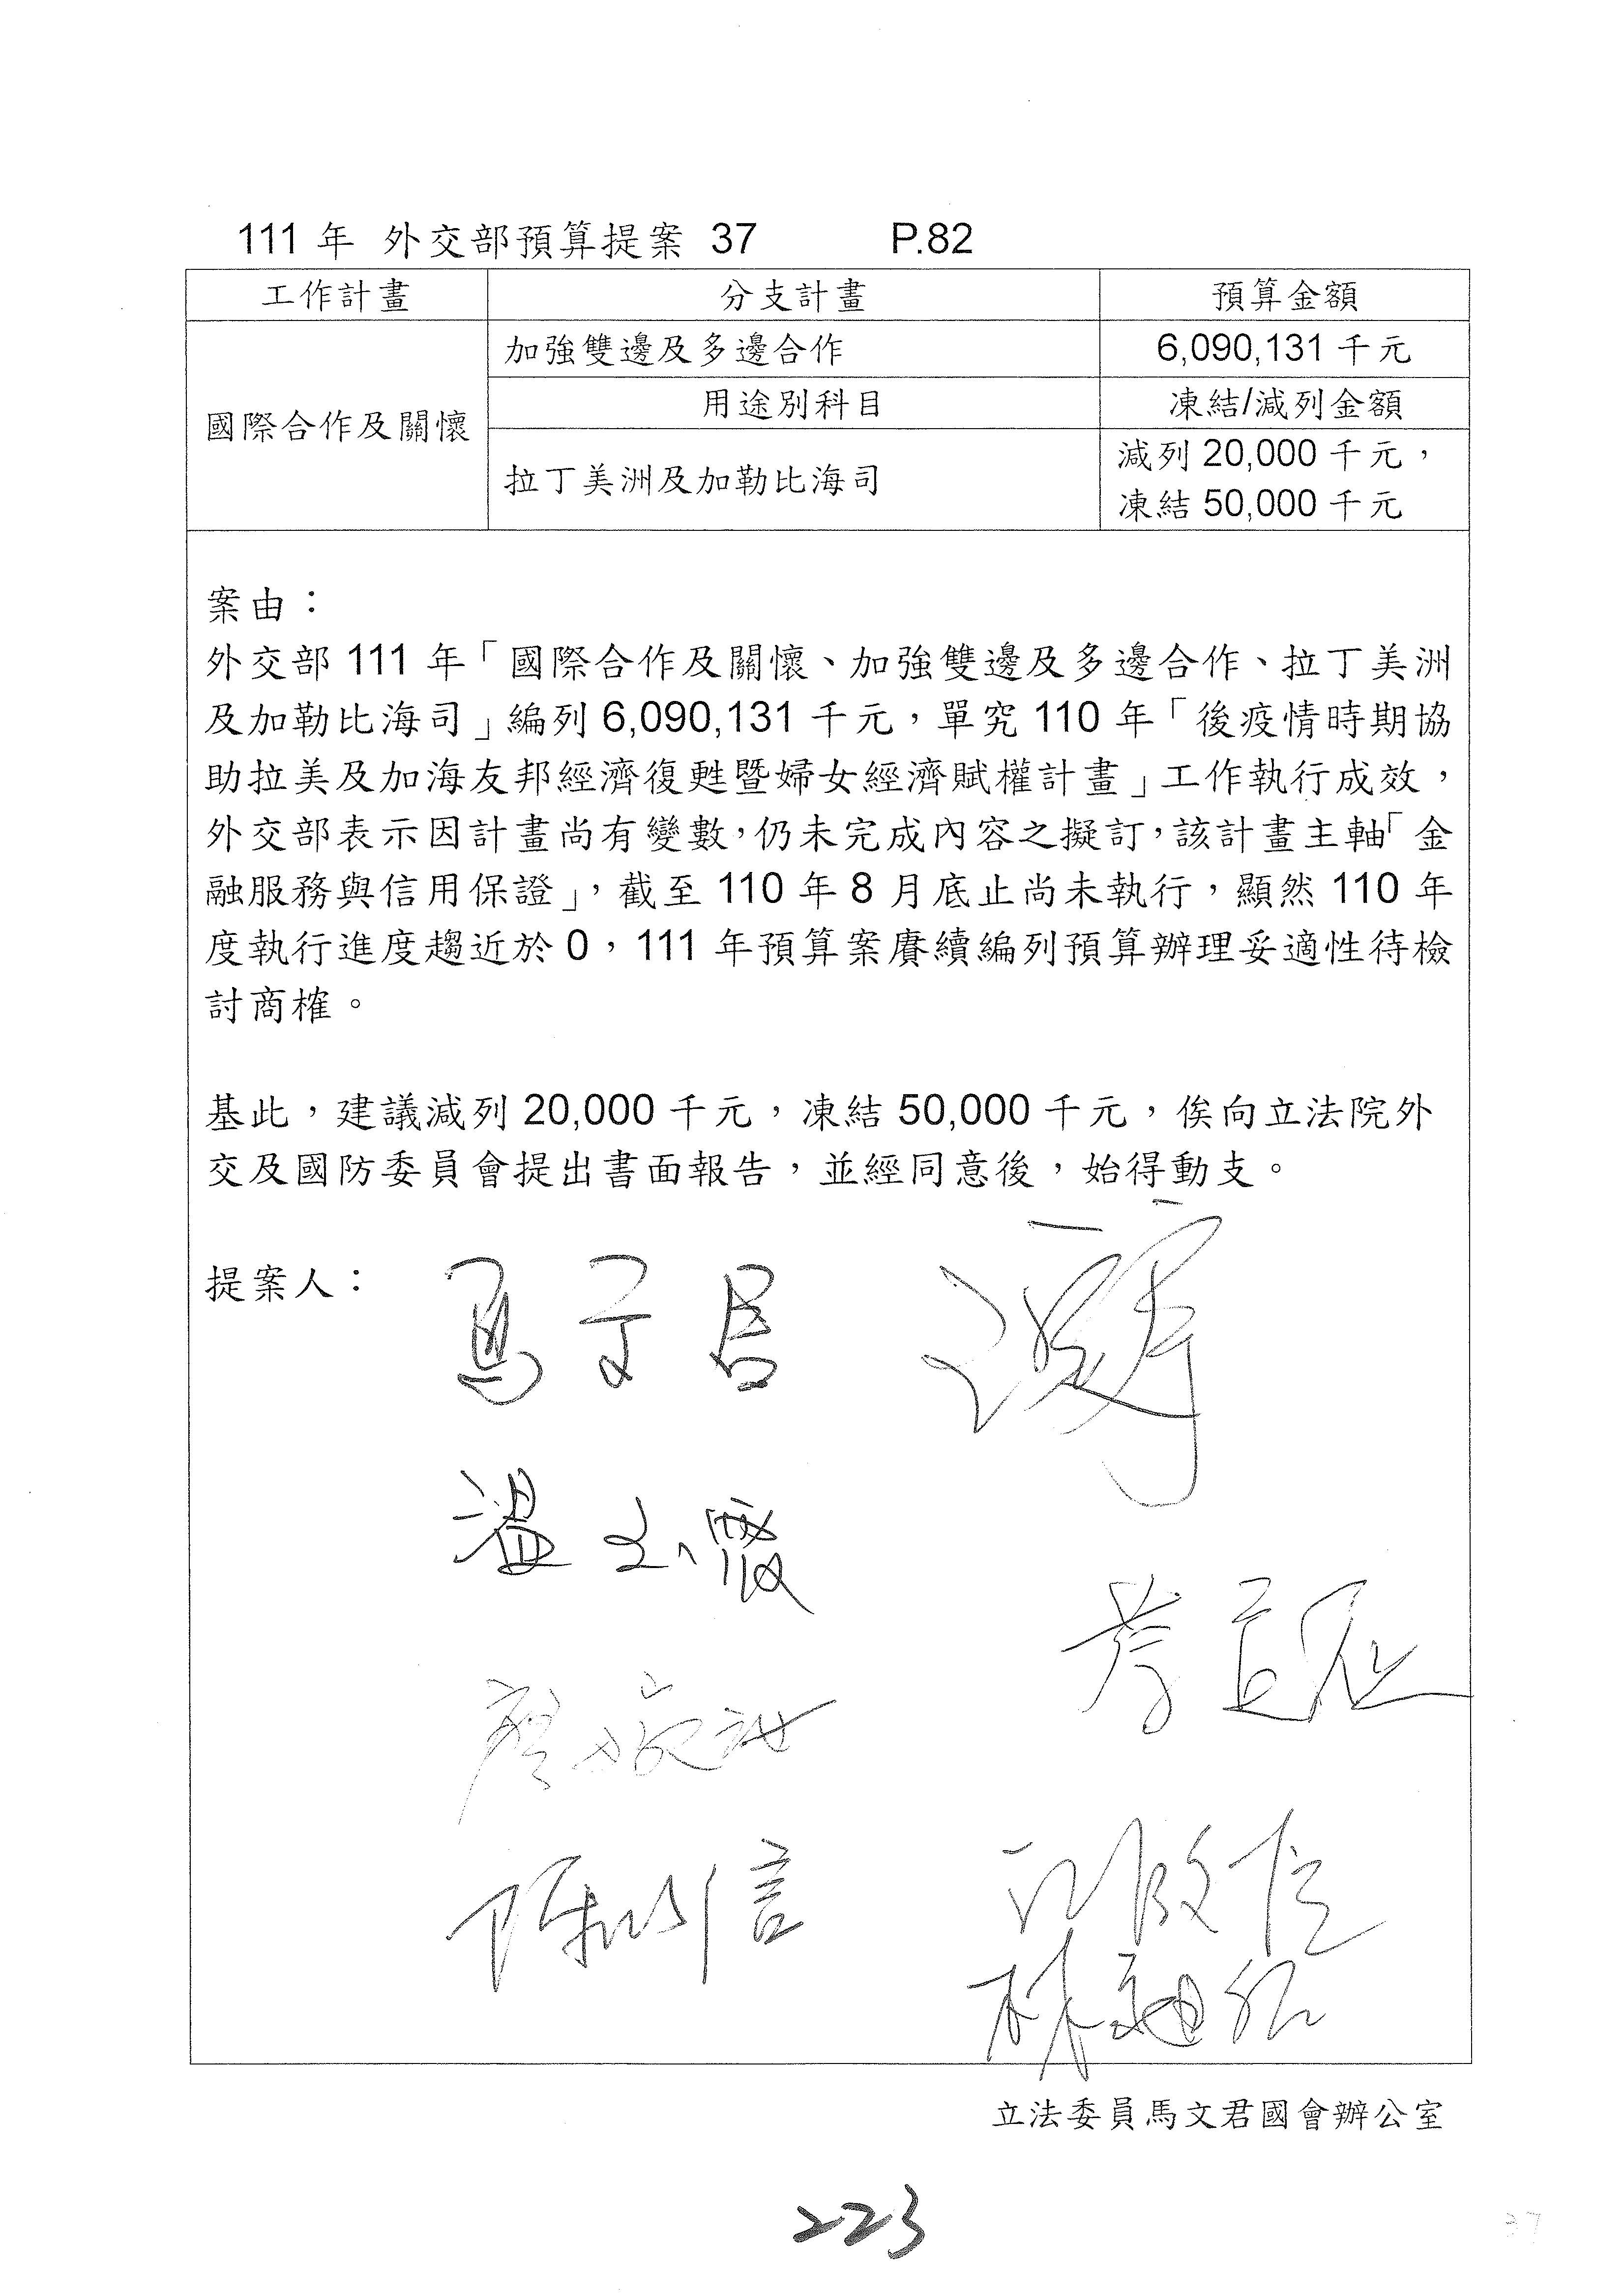 111 年 外交部預算提案 37 P.82
工作計畫 分支計畫 預算金額
加強雙邊及多邊合作 6,090,131 千元
用途別科目 凍結/減列金額
國際合作及關懷
拉丁美洲及加勒比海司 減列 20,000 千元，
凍結 50,000 千元
案由：
外交部 111 年「國際合作及關懷、加強雙邊及多邊合作、拉丁美洲
及加勒比海司」編列 6,090,131 千元，單究 110 年「後疫情時期協
助拉美及加海友邦經濟復甦暨婦女經濟賦權計畫」工作執行成效，
外交部表示因計畫尚有變數，仍未完成內容之擬訂，該計畫主軸「金
融服務與信用保證」，截至 110 年 8 月底止尚未執行，顯然 110 年
度執行進度趨近於 0，111 年預算案賡續編列預算辦理妥適性待檢
討商榷。
基此，建議減列 20,000 千元，凍結 50,000 千元，俟向立法院外
交及國防委員會提出書面報告，並經同意後，始得動支。
提案人：
馬文君
溫玉霞
陳以信
立法委員馬文君國會辦公室
223
37